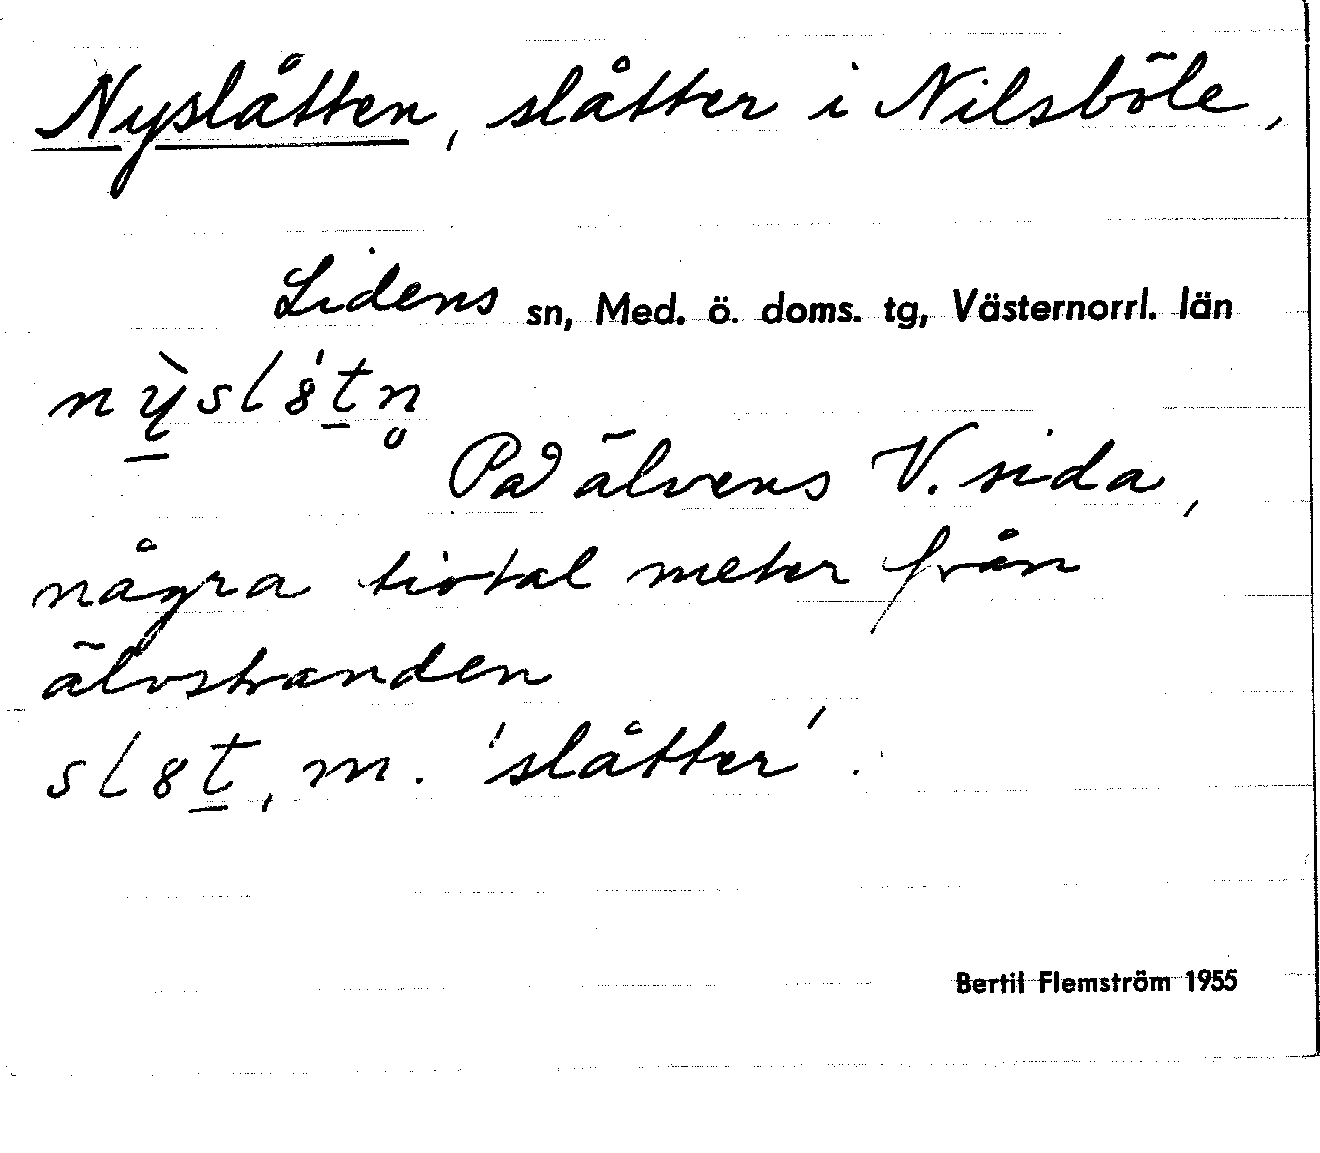 Nyslåtten, slåtter i Nilsböle,
Lidens sn, Med. ö. doms. tg, Västernorrl. län
nỳ̠sl8́t̠n̥
På älvens V. sida,
några tiotal meter från
älvstranden
sl8t̠, m. 'slåtter'.
Bertil Flemström 1955